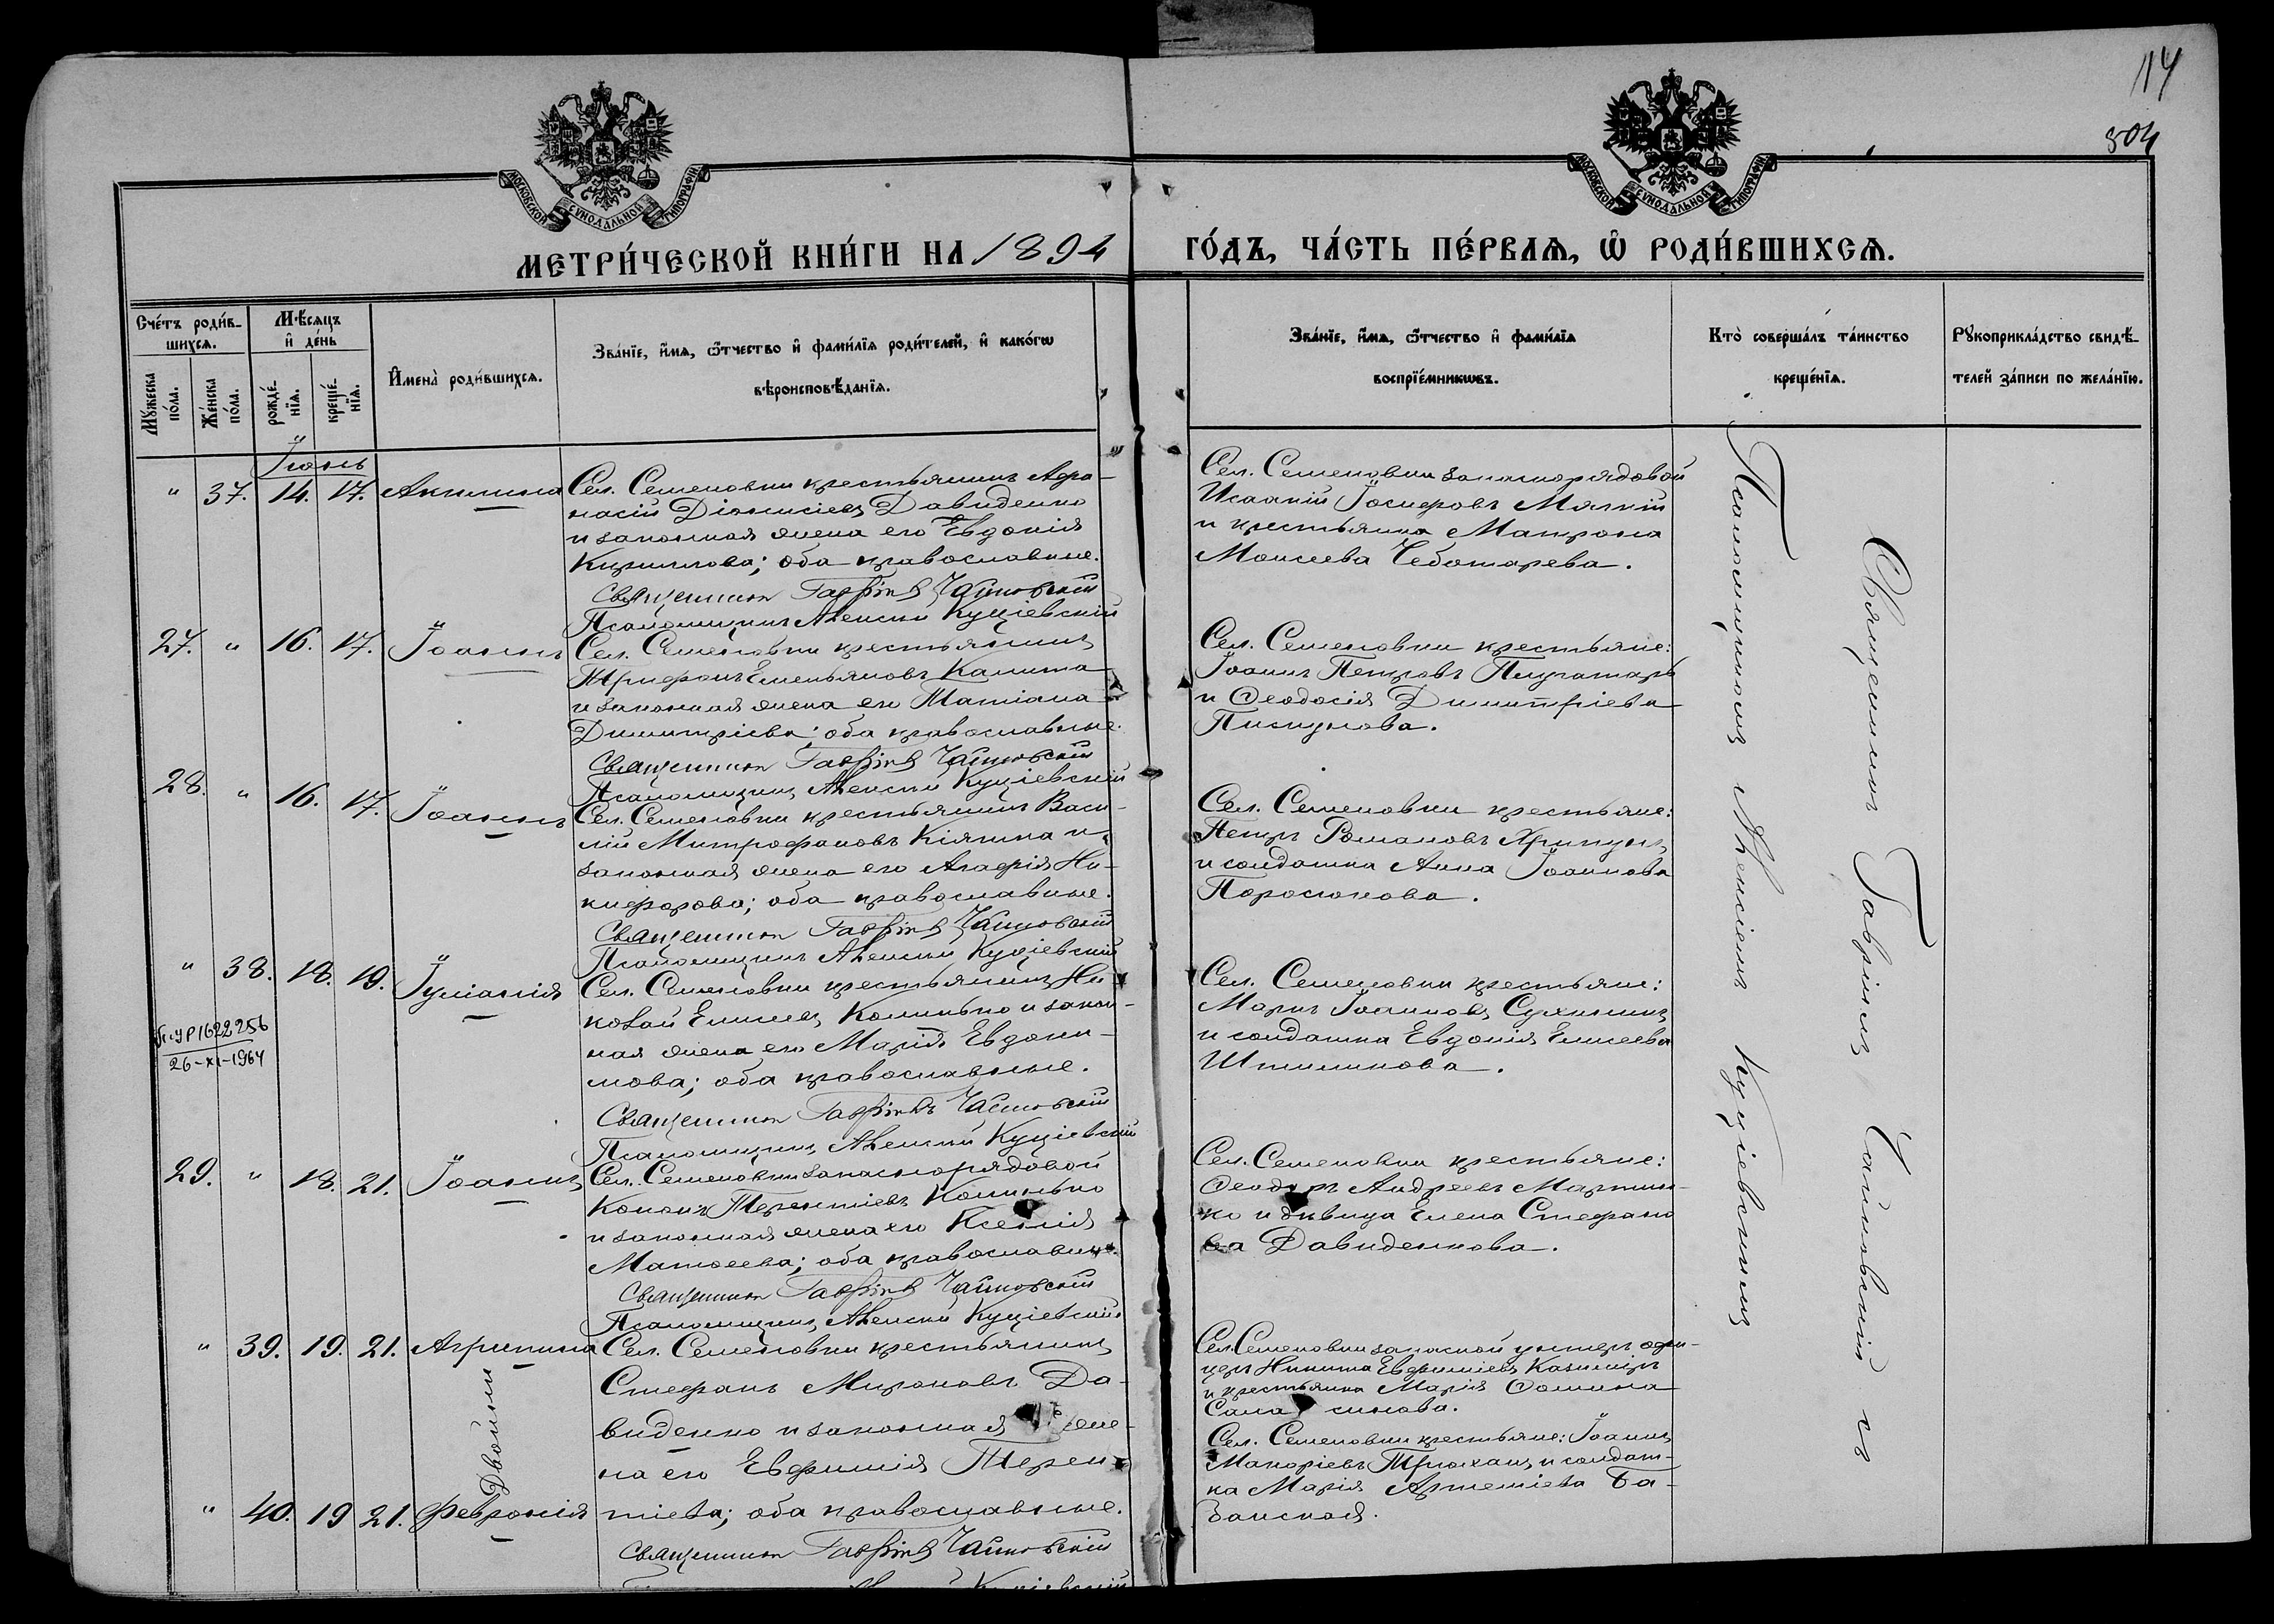 114
504
МОСКОВСКОЙ СѴНОДАЛЬНОЙ ТИПОГРАФІИ
МОСКОВСКОЙ СѴНОДАЛЬНОЙ ТИПОГРАФІИ
МЕТРИ́ЧЕСКОЙ КНИ́ГИ НА 1894 ГО́ДЪ, ЧА́СТЬ ПЕ́РВАѦ, Ѡ҆ РОДИ́ВШИХСѦ.
Сче́тъ роди́в-
шихсѧ.
Мꙋ́жеска
по́ла.
Же́нска
по́ла.
Мѣ́сѧцъ
и҆ де́нь
рожде́-
нїѧ.
креще́-
нїѧ.
И҆мена̀ роди́вшихсѧ.
Зва́нїе, и҆́мѧ, ѻ҆́тчество и҆ фами́лїѧ роди́телей, и҆ како́гѡ
вѣроисповѣ́данїѧ.
Зва́нїе, и҆́мѧ, ѻ҆́тчество и҆ фами́лїѧ
воспрїе́мникѡвъ.
Кто̀ соверша́лъ та́инство
креще́нїѧ.
Рꙋкоприкла́дство свидѣ́-
телей за́писи по жела́нїю.
Іюнь
" 37. 14. 17. Акилина
Сел. Семеновки крестьянинъ Афа-
насій Діонисіевъ Давиденко
и законная жена его Евдокія
Кириллова; оба православные.
Священникъ Гавріилъ Чайковскій
Псаломщикъ Алексій Куціевскій
Сел. Семеновки запасн. рядовой
Исаакій Іосифовъ Мягкій
и крестьянка Матрона
Моисеева Чеботарева.
27. " 16. 17. Іоаннъ
Сел. Семеновки крестьянинъ
Трифонъ Емельяновъ Калита
и законная жена его Татіана
Димитріева; оба православные.
Священникъ Гавріилъ Чайковскій
Псаломщикъ Алексій Куціевскій
Сел. Семеновки крестьяне:
Іоаннъ Петровъ Плугатарь
и Ѳеодосія Димитріева
Пискунова.
28. " 16. 17. Іоаннъ
Сел. Семеновки крестьянинъ Васи-
лій Митрофановъ Кіяшка и
законная жена его Агафія Ни-
кифорова; оба православные.
Священникъ Гавріилъ Чайковскій
Псаломщикъ Алексій Куціевскій
Сел. Семеновки крестьяне:
Петръ Романовъ Хрипунъ
и солдатка Анна Іоаннова
Поросюкова.
" 38. 18. 19. Іуліанія
26-XI-1964
Сел. Семеновки крестьянинъ Ни-
колай Елисеевъ Колинько и закон-
ная жена его Марія Евдоки-
мова; оба православные.
Священникъ Гавріилъ Чайковскій
Псаломщикъ Алексій Куціевскій
Сел. Семеновки крестьяне:
Маркъ Іоанновъ Сухининъ
и солдатка Евдокія Елисеева
29. " 18. 21. Іоаннъ
Сел. Семеновки запасн. рядовой
Кононъ Терентіевъ Колинько
и законная жена его Ксенія
Матѳеева; оба православные.
Священникъ Гавріилъ Чайковскій
Псаломщикъ Алексій Куціевскій
Сел. Семеновки крестьяне:
Ѳеодоръ Андреевъ Мартын-
ко и дѣвица Елена Стефано
ва Давиденкова.
" 39. 19. 21. Агрипина
Двойни
" 40. 19 21. Февронія
Сел. Семеновки крестьянинъ
Стефанъ Мироновъ Да-
виденко и законная жене-
на его Евфимія Терен-
тіева; оба православные.
Священникъ Гавріилъ Чайковскій
Сел. Семеновки запасной унтеръ офи-
церъ Никита Евфиміевъ
и крестьянка Марія Ѳомина
Сел. Семеновки крестьяне: Іоаннъ
Макаріевъ и солдат-
ка Марія Артеміева Ба-
Священникъ Гавріилъ Чайковскій съ
Псаломщикомъ Алексіемъ Куціевскимъ